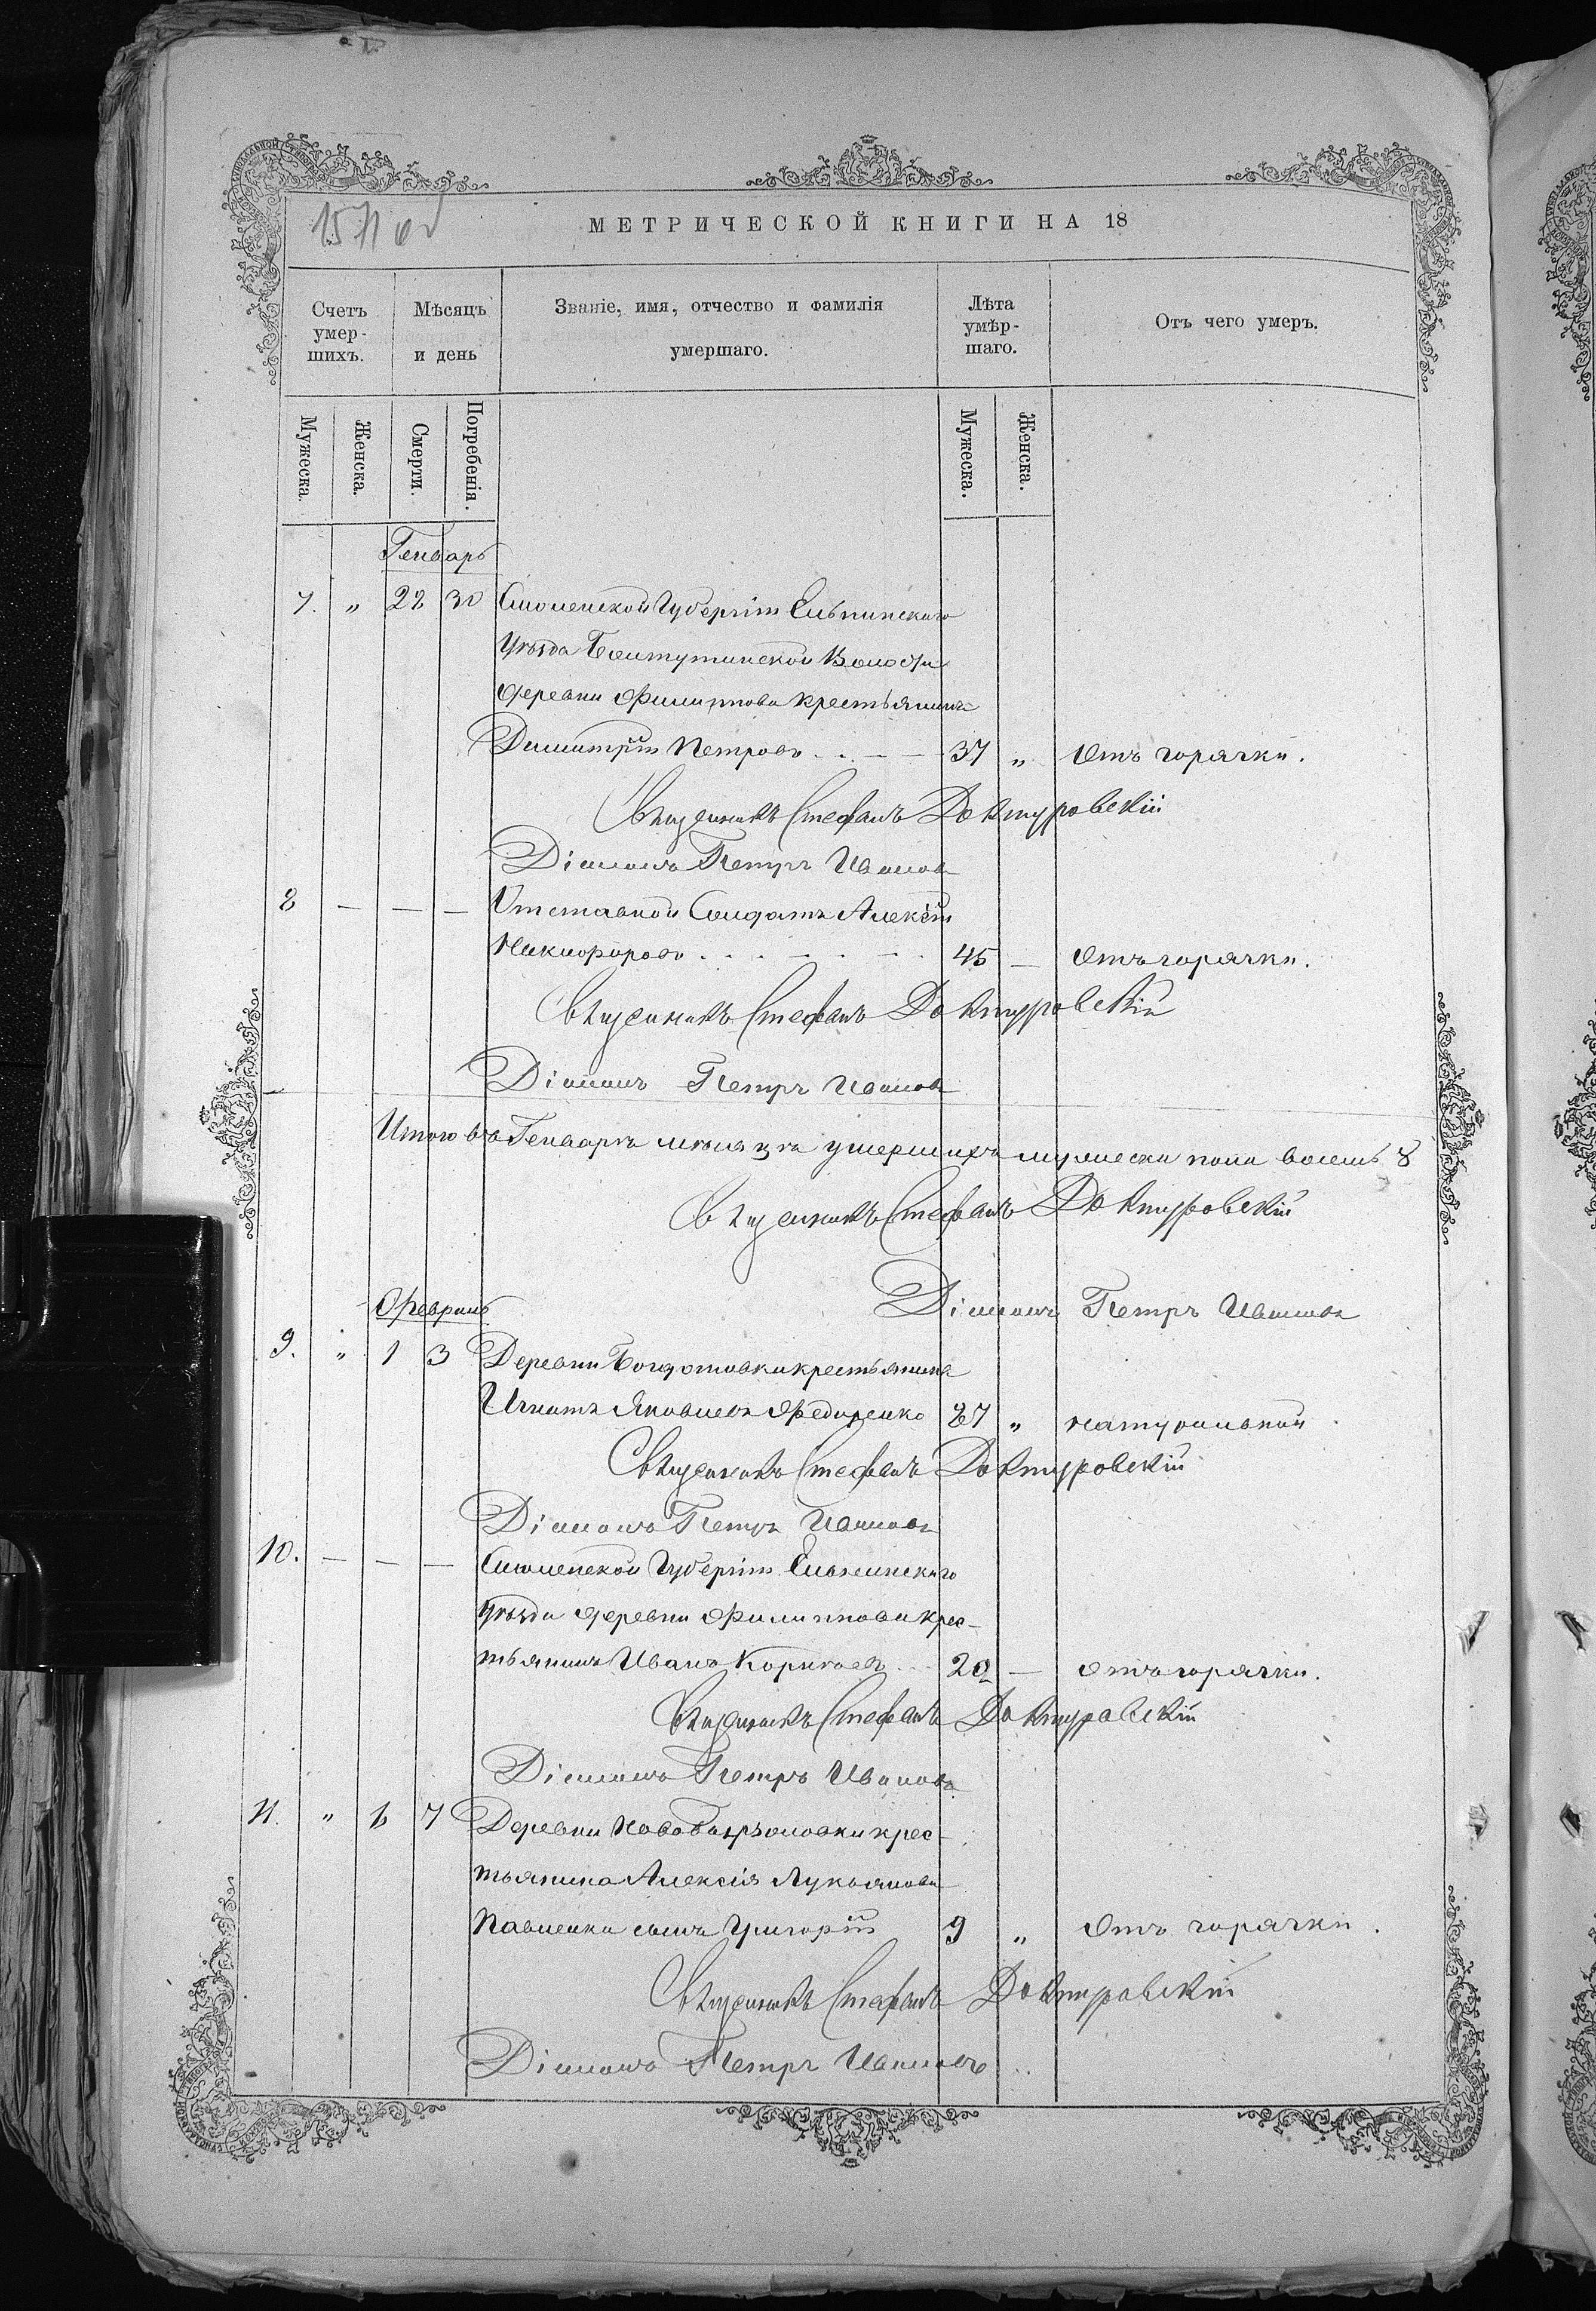 1571 об
МЕТРИЧЕСКОЙ КНИГИ НА 18
Счетъ умер-шихъ.
Мѣсяцъ и день
Званіе, имя, отчество и фамилія умершаго.
Лѣта умѣр-шаго.
Отъ чего умеръ.
Мужеска. Женска. Смерти. Погребенія. Мужеска. Женска.
Генварь
7. „ 28 30 Смоленской Губерніи Ельнинскаго
Уѣзда Болтутинской Волости
деревни Филиппова крестьянинъ
Димитрій Петровъ 37 „ Отъ горячки.
Священникъ Стефанъ Доктуровскій
Діаконъ Петръ Ивановъ
8 — — — Отставной Солдатъ Алексѣй
Никифоровъ 45 — Отъ горячки.
Священникъ Стефанъ Доктуровскій
Діаконъ Петръ Ивановъ
Итого въ Генварѣ мѣсяцѣ умершихъ мужеска пола восемь 8
Священникъ Стефанъ Доктуровскій
Діаконъ Петръ Ивановъ
Февраль
9. „ 1 3 Деревни крестьянинъ
Игнатъ Яковлевъ Федоренко 27 „ натуральной
Священникъ Стефанъ Доктуровскій
Діаконъ Петръ Ивановъ
10. — — — Смоленской Губерніи Ельнинскаго
Уѣзда деревни Филиппова крес-
тьянинъ Иванъ 20 — отъ горячки.
Священникъ Стефанъ Доктуровскій
Діаконъ Петръ Ивановъ
11. „ 6 7 Деревни крес-
тьянина Алексія Лукьянова
Павленки сынъ Григорій 9 „ Отъ горячки.
Священникъ Стефанъ Доктуровскій
Діаконъ Петръ Ивановъ